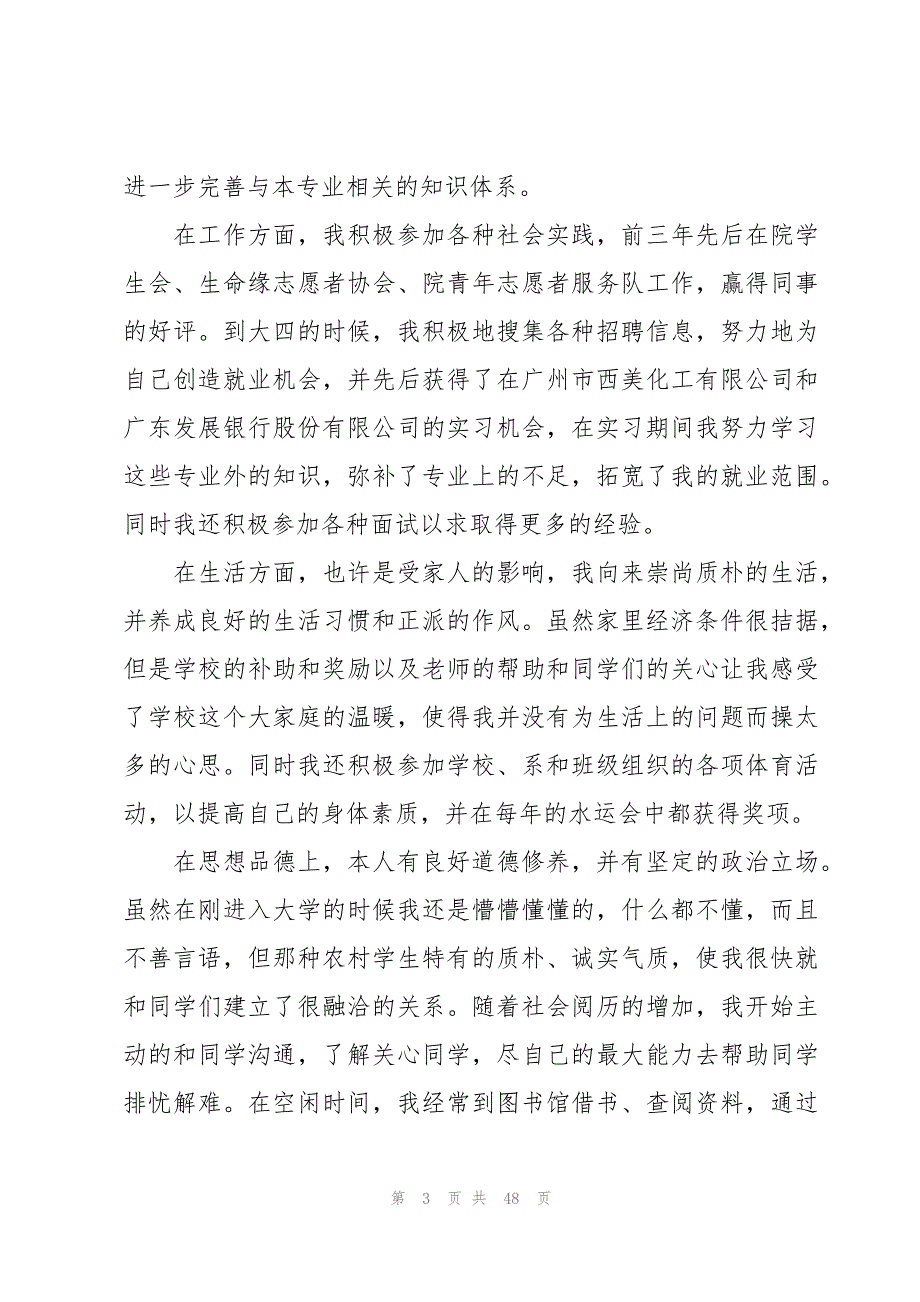 进一步完善与本专业相关的知识体系。
在工作方面，我积极参加各种社会实践，前三年先后在院学
生会、生命缘志愿者协会、院青年志愿者服务队工作，赢得同事
的好评。到大四的时候，我积极地搜集各种招聘信息，努力地为
自己创造就业机会，并先后获得了在广州市西美化工有限公司和
广东发展银行股份有限公司的实习机会，在实习期间我努力学习
这些专业外的知识，弥补了专业上的不足，拓宽了我的就业范围。
同时我还积极参加各种面试以求取得更多的经验。
在生活方面，也许是受家人的影响，我向来崇尚质朴的生活，
并养成良好的生活习惯和正派的作风。虽然家里经济条件很拮据，
但是学校的补助和奖励以及老师的帮助和同学们的关心让我感受
了学校这个大家庭的温暖，使得我并没有为生活上的问题而操太
多的心思。同时我还积极参加学校、系和班级组织的各项体育活
动，以提高自己的身体素质，并在每年的水运会中都获得奖项。
在思想品德上，本人有良好道德修养，并有坚定的政治立场。
虽然在刚进入大学的时候我还是懵懵懂懂的，什么都不懂，而且
不善言语，但那种农村学生特有的质朴、诚实气质，使我很快就
和同学们建立了很融洽的关系。随着社会阅历的增加，我开始主
动的和同学沟通，了解关心同学，尽自己的最大能力去帮助同学
排忧解难。在空闲时间，我经常到图书馆借书、查阅资料，通过
第 3 页 共 48 页